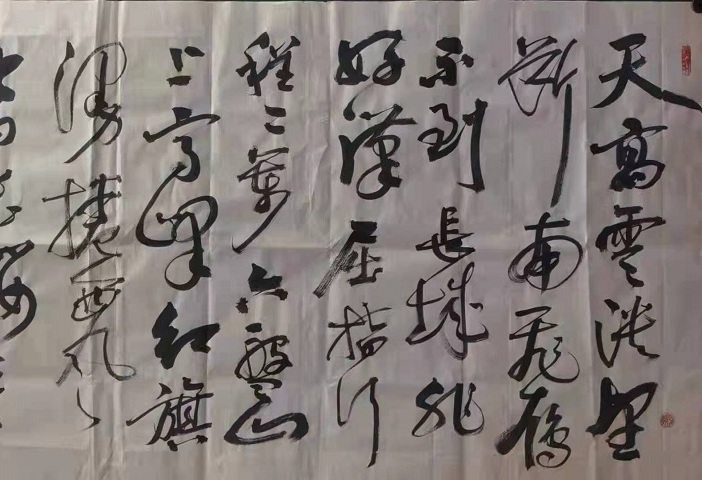 天高雲淡望
断南飛雁
不到長城非
好漢屈指行
程二萬六盤山
上高峰紅旗
漫捲西風